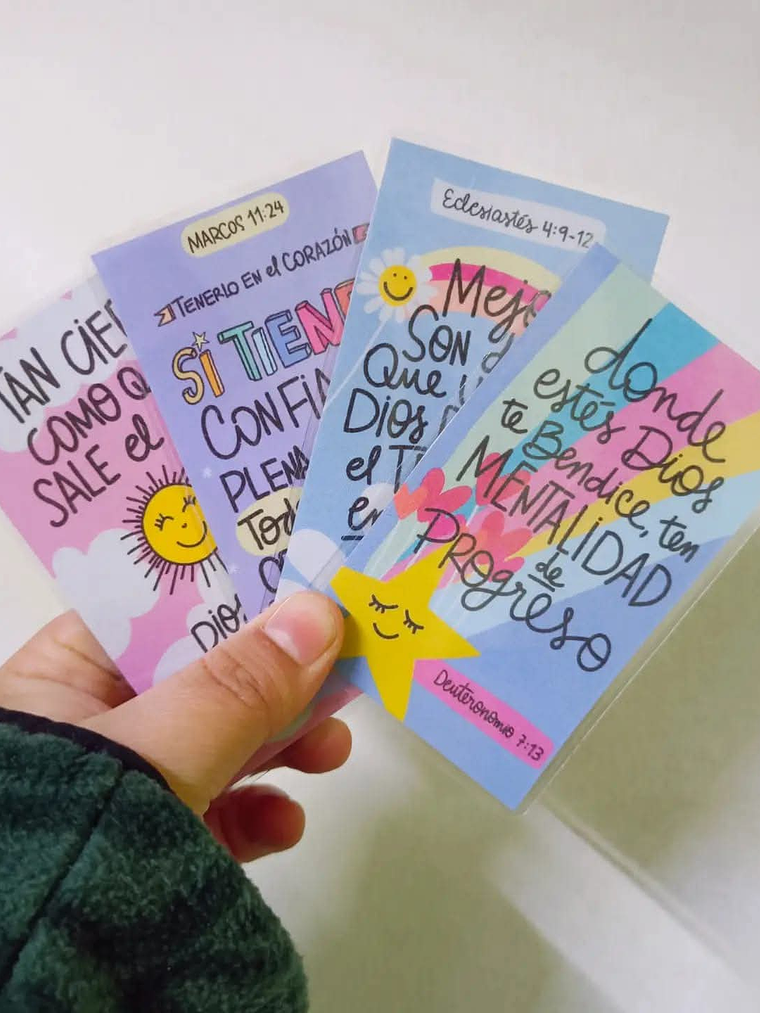 TAN CIER
COMO Q
SALE el
DIOS
MARCOS 11:24
TENERLO EN el CORAZÓN
SI TIENE
CONFIA
PLENA
Tod
Eclesiastés 4:9-12
Mejo
SON d
Que u
DIOS
el T
en
donde
estés Dios
te Bendice, ten
MENTALIDAD
de
PROgreso
Deuteronomio 7:13